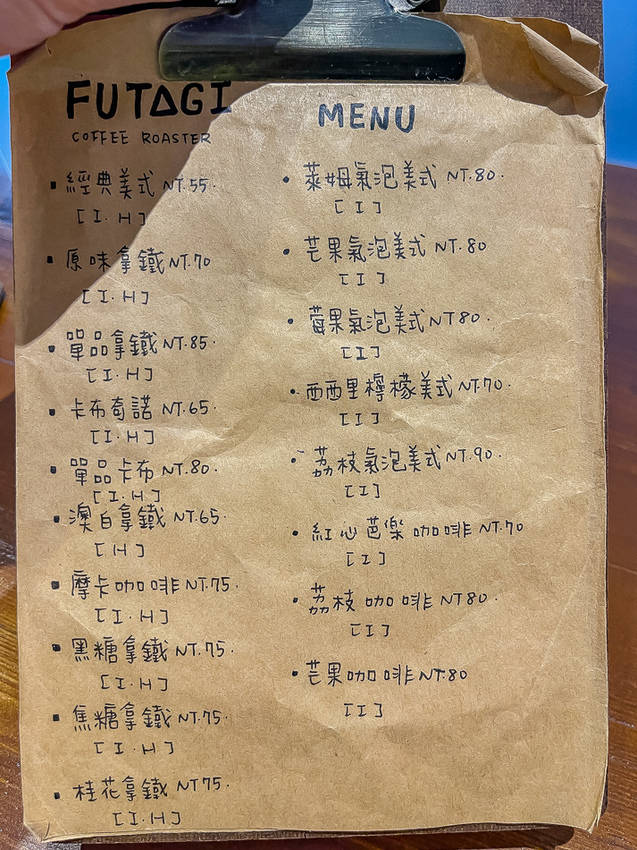 FUTAGI
COFFEE ROASTER
▪ 經典美式 NT.55.
[I.H]
▪ 原味拿鐵 NT.70
[I.H]
▪ 單品拿鐵 NT.85.
[I.H]
▪ 卡布奇諾 NT.65.
[I.H]
▪ 單品卡布 NT.80.
[I.H]
▪ 澳白拿鐵 NT.65.
[H]
▪ 摩卡咖啡 NT.75.
[I.H]
▪ 黑糖拿鐵 NT.75.
[I.H]
▪ 焦糖拿鐵 NT.75.
[I.H]
▪ 桂花拿鐵 NT75.
[I.H]
MENU
• 萊姆氣泡美式 NT.80.
[I]
• 芒果氣泡美式 NT.80
[I]
• 莓果氣泡美式 NT80.
[I]
• 西西里檸檬美式 NT.70.
[I]
• 荔枝氣泡美式 NT.90.
[I]
• 紅心芭樂咖啡 NT.70
[I]
• 荔枝咖啡 NT80.
[I]
• 芒果咖啡 NT.80
[I]